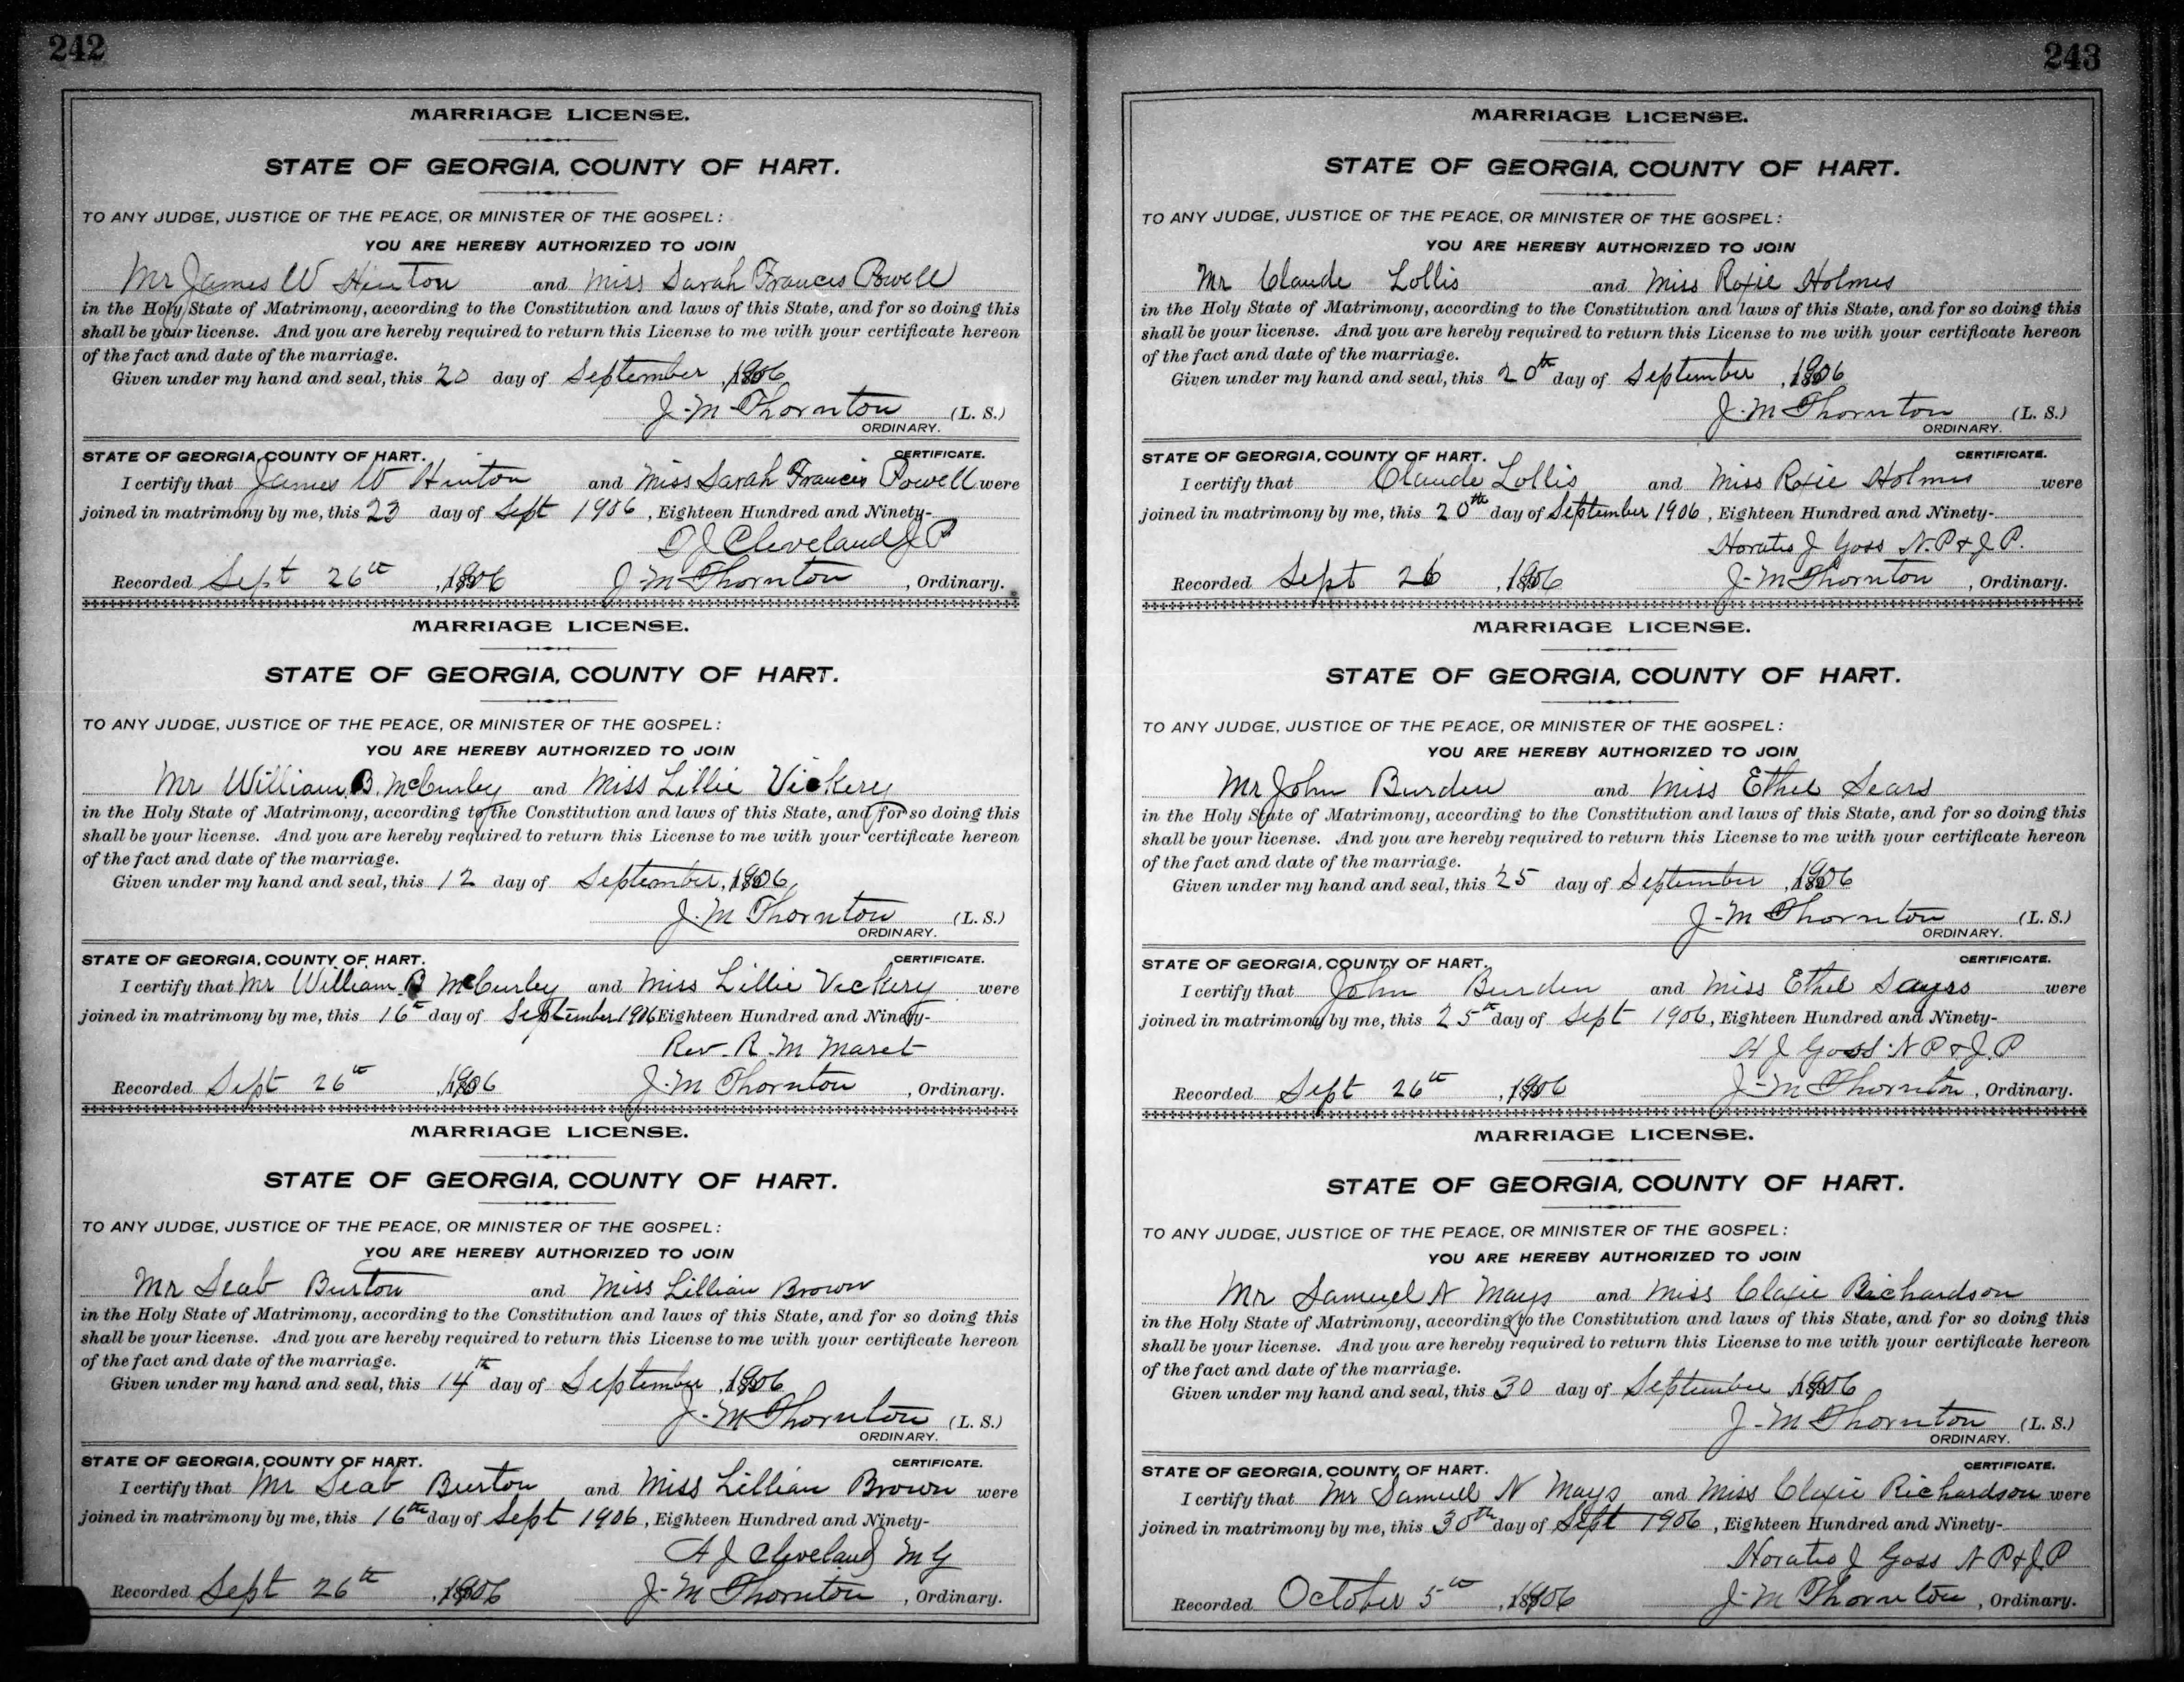 242
MARRIAGE LICENSE.
STATE OF GEORGIA, COUNTY OF HART.
TO ANY JUDGE, JUSTICE OF THE PEACE, OR MINISTER OF THE GOSPEL:
YOU ARE HEREBY AUTHORIZED TO JOIN
Mr James W Hinton and Miss Sarah Frances Powell
in the Holy State of Matrimony, according to the Constitution and laws of this State, and for so doing this
shall be your license. And you are hereby required to return this License to me with your certificate hereon
of the fact and date of the marriage.
Given under my hand and seal, this 20 day of September, 1906
J. M Thornton (L. S.)
ORDINARY.
STATE OF GEORGIA, COUNTY OF HART. CERTIFICATE.
I certify that James W Hinton and Miss Sarah Francis Powell were
joined in matrimony by me, this 23 day of Sept 1906, Eighteen Hundred and Ninety-
J Cleveland J P
Recorded Sept 26th, 1906 J-M Thornton, Ordinary.
MARRIAGE LICENSE.
STATE OF GEORGIA, COUNTY OF HART.
TO ANY JUDGE, JUSTICE OF THE PEACE, OR MINISTER OF THE GOSPEL:
YOU ARE HEREBY AUTHORIZED TO JOIN
Mr William B. McCurley and Miss Lillie Vickery
in the Holy State of Matrimony, according to the Constitution and laws of this State, and for so doing this
shall be your license. And you are hereby required to return this License to me with your certificate hereon
of the fact and date of the marriage.
Given under my hand and seal, this 12 day of September, 1906
J. M Thornton (L. S.)
ORDINARY.
STATE OF GEORGIA, COUNTY OF HART. CERTIFICATE.
I certify that Mr William B McCurley and Miss Lillie Vickery were
joined in matrimony by me, this 16th day of September 1906 Eighteen Hundred and Ninety-
Rev. R. M Maret
Recorded Sept 26th, 1906 J-M Thornton, Ordinary.
MARRIAGE LICENSE.
STATE OF GEORGIA, COUNTY OF HART.
TO ANY JUDGE, JUSTICE OF THE PEACE, OR MINISTER OF THE GOSPEL:
YOU ARE HEREBY AUTHORIZED TO JOIN
Mr Seab Burton and Miss Lillian Brown
in the Holy State of Matrimony, according to the Constitution and laws of this State, and for so doing this
shall be your license. And you are hereby required to return this License to me with your certificate hereon
of the fact and date of the marriage.
Given under my hand and seal, this 14th day of September, 1906
J-M Thornton (L. S.)
ORDINARY.
STATE OF GEORGIA, COUNTY OF HART. CERTIFICATE.
I certify that Mr Seab Burton and Miss Lillian Brown were
joined in matrimony by me, this 16th day of Sept 1906, Eighteen Hundred and Ninety-
A J Cleveland M G
Recorded Sept 26th, 1906 J-M Thornton, Ordinary.
243
MARRIAGE LICENSE.
STATE OF GEORGIA, COUNTY OF HART.
TO ANY JUDGE, JUSTICE OF THE PEACE, OR MINISTER OF THE GOSPEL:
YOU ARE HEREBY AUTHORIZED TO JOIN
Mr Claude Lollis and Miss Roxie Holmes
in the Holy State of Matrimony, according to the Constitution and laws of this State, and for so doing this
shall be your license. And you are hereby required to return this License to me with your certificate hereon
of the fact and date of the marriage.
Given under my hand and seal, this 20th day of September, 1906
J-M Thornton (L. S.)
ORDINARY.
STATE OF GEORGIA, COUNTY OF HART. CERTIFICATE.
I certify that Claude Lollis and Miss Roxie Holmes were
joined in matrimony by me, this 20th day of September 1906, Eighteen Hundred and Ninety-
Horatio J Goss N.P. & J P.
Recorded Sept 26, 1906 J-M Thornton, Ordinary.
MARRIAGE LICENSE.
STATE OF GEORGIA, COUNTY OF HART.
TO ANY JUDGE, JUSTICE OF THE PEACE, OR MINISTER OF THE GOSPEL:
YOU ARE HEREBY AUTHORIZED TO JOIN
Mr John Burden and Miss Ethel Sears
in the Holy State of Matrimony, according to the Constitution and laws of this State, and for so doing this
shall be your license. And you are hereby required to return this License to me with your certificate hereon
of the fact and date of the marriage.
Given under my hand and seal, this 25 day of September, 1906
J-M Thornton (L. S.)
ORDINARY.
STATE OF GEORGIA, COUNTY OF HART. CERTIFICATE.
I certify that John Burden and Miss Ethel Sayrs were
joined in matrimony by me, this 25th day of Sept 1906, Eighteen Hundred and Ninety-
H J Goss N P & J. P
Recorded Sept 26th, 1906 J-M Thornton, Ordinary.
MARRIAGE LICENSE.
STATE OF GEORGIA, COUNTY OF HART.
TO ANY JUDGE, JUSTICE OF THE PEACE, OR MINISTER OF THE GOSPEL:
YOU ARE HEREBY AUTHORIZED TO JOIN
Mr Samuel N Mays and Miss Claxie Richardson
in the Holy State of Matrimony, according to the Constitution and laws of this State, and for so doing this
shall be your license. And you are hereby required to return this License to me with your certificate hereon
of the fact and date of the marriage.
Given under my hand and seal, this 30 day of September, 1906
J-M Thornton (L. S.)
ORDINARY.
STATE OF GEORGIA, COUNTY OF HART. CERTIFICATE.
I certify that Mr Samuel N Mays and Miss Claxie Richardson were
joined in matrimony by me, this 30th day of Sept 1906, Eighteen Hundred and Ninety-
Horatio J Goss N P & J. P
Recorded October 5th, 1906 J-M Thornton, Ordinary.